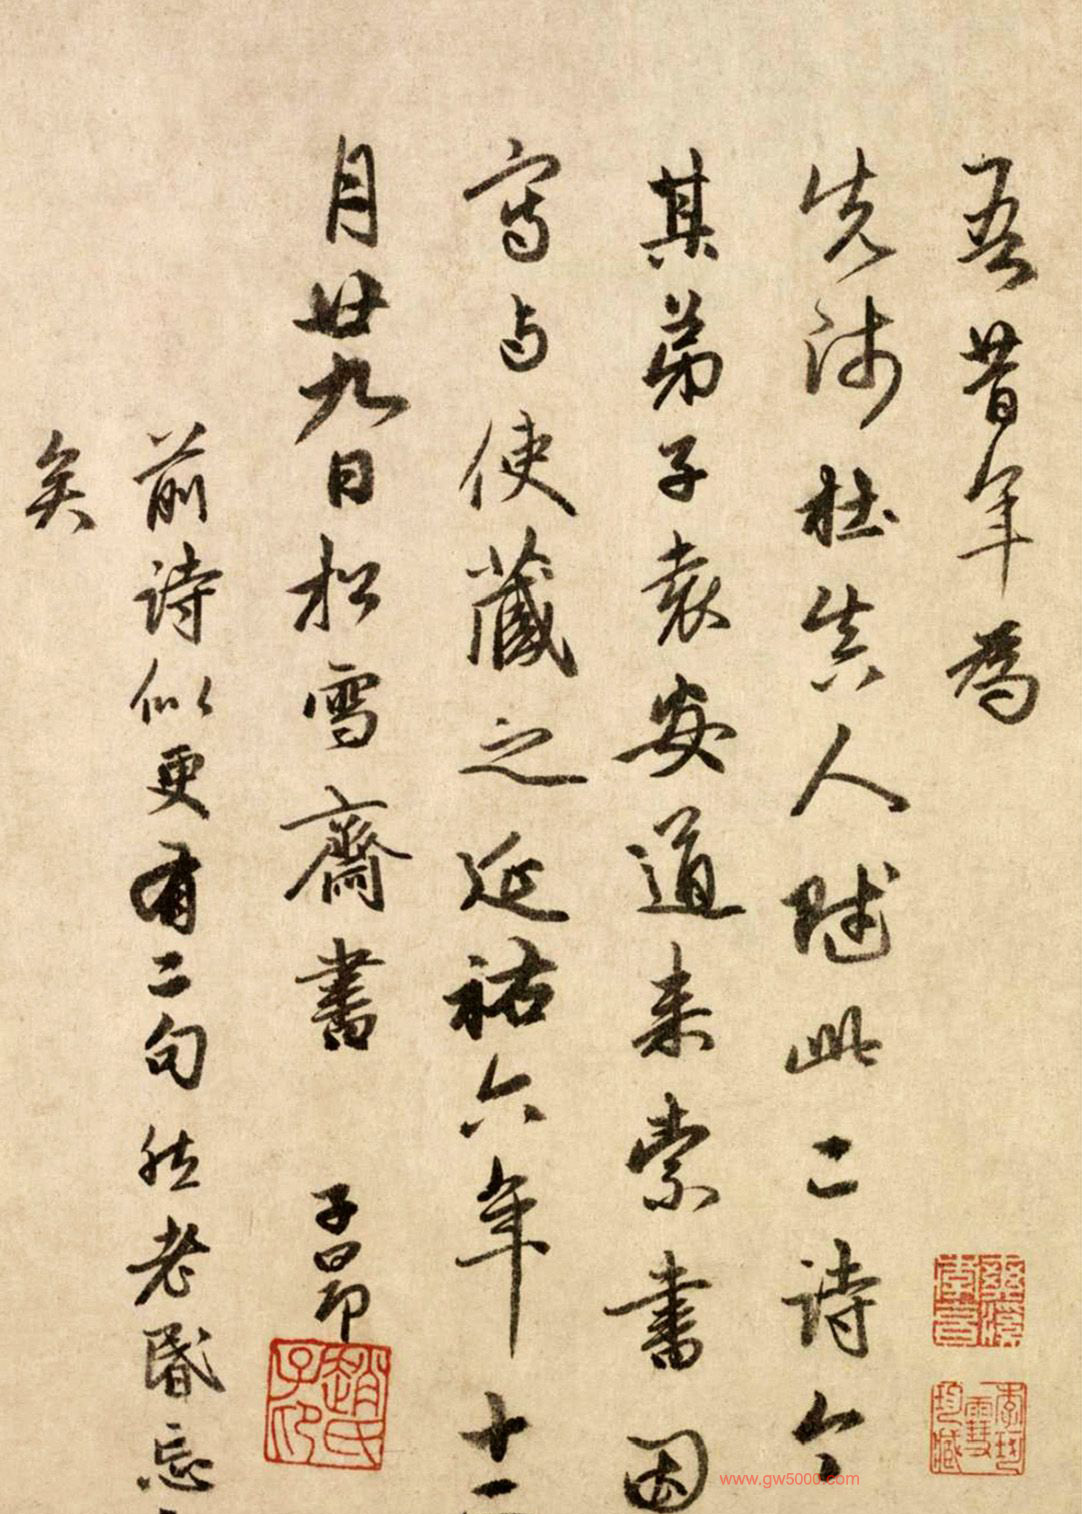 吾昔年為
先師杜真人賦此二詩今
其弟子袁安道来索書因
寫与使藏之延祐六年十一
月廿九日松雪齋書 子昂
前詩似更有二句然老昏忘
矣
趙氏子印
www.gw5000.com